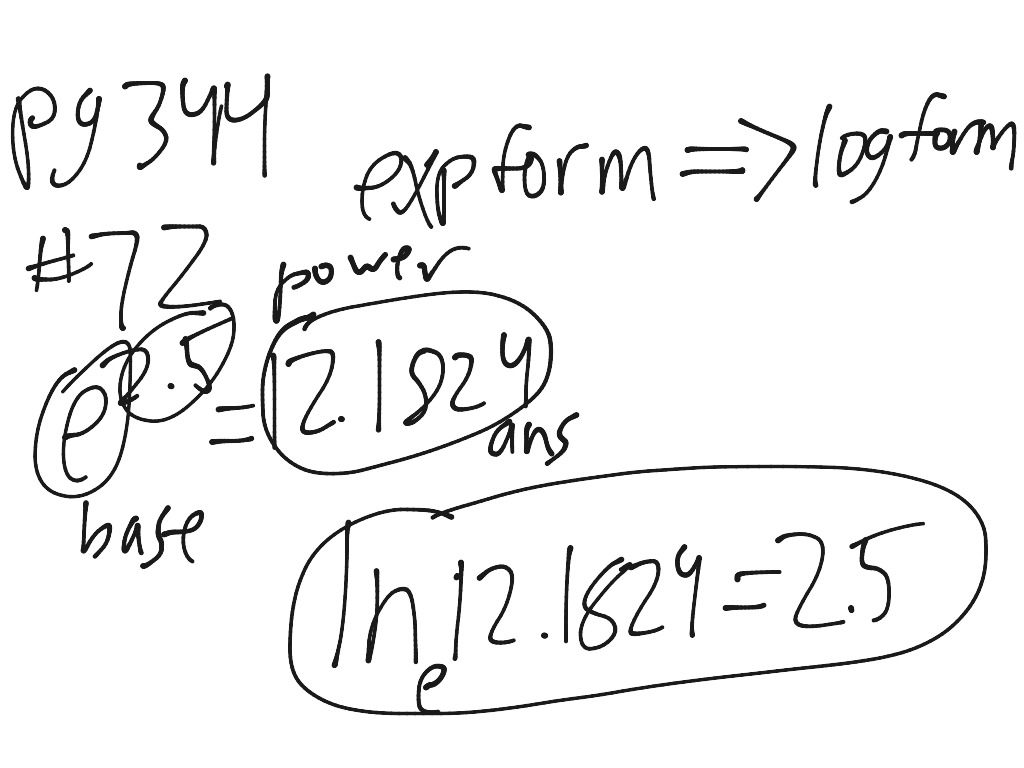 pg 344
exp form => log form
#72
power
e^2.5 = 12.1824
ans
base
ln_e 12.1824 = 2.5